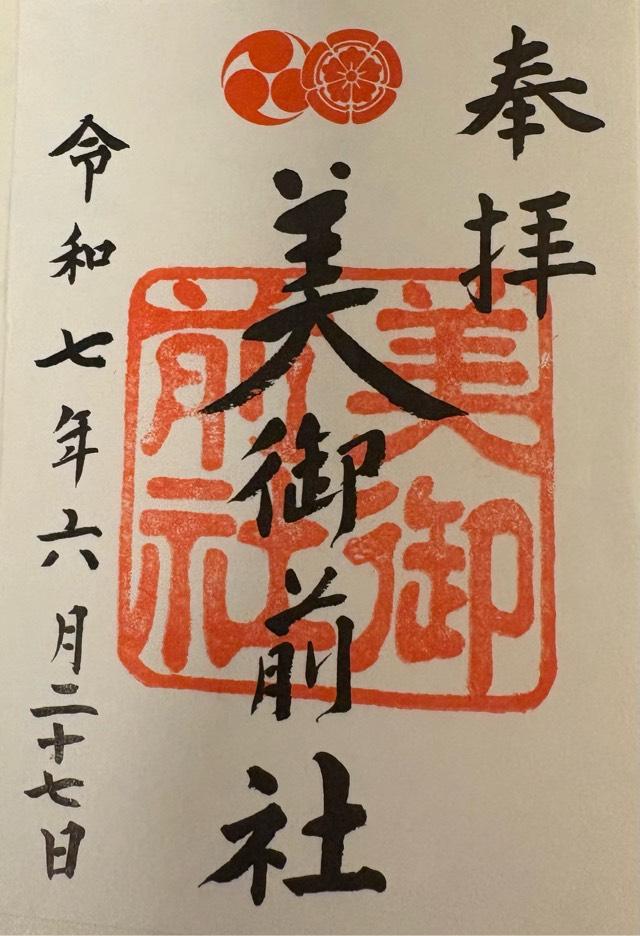 奉拝
美御前社
美御前社
令和七年六月二十七日